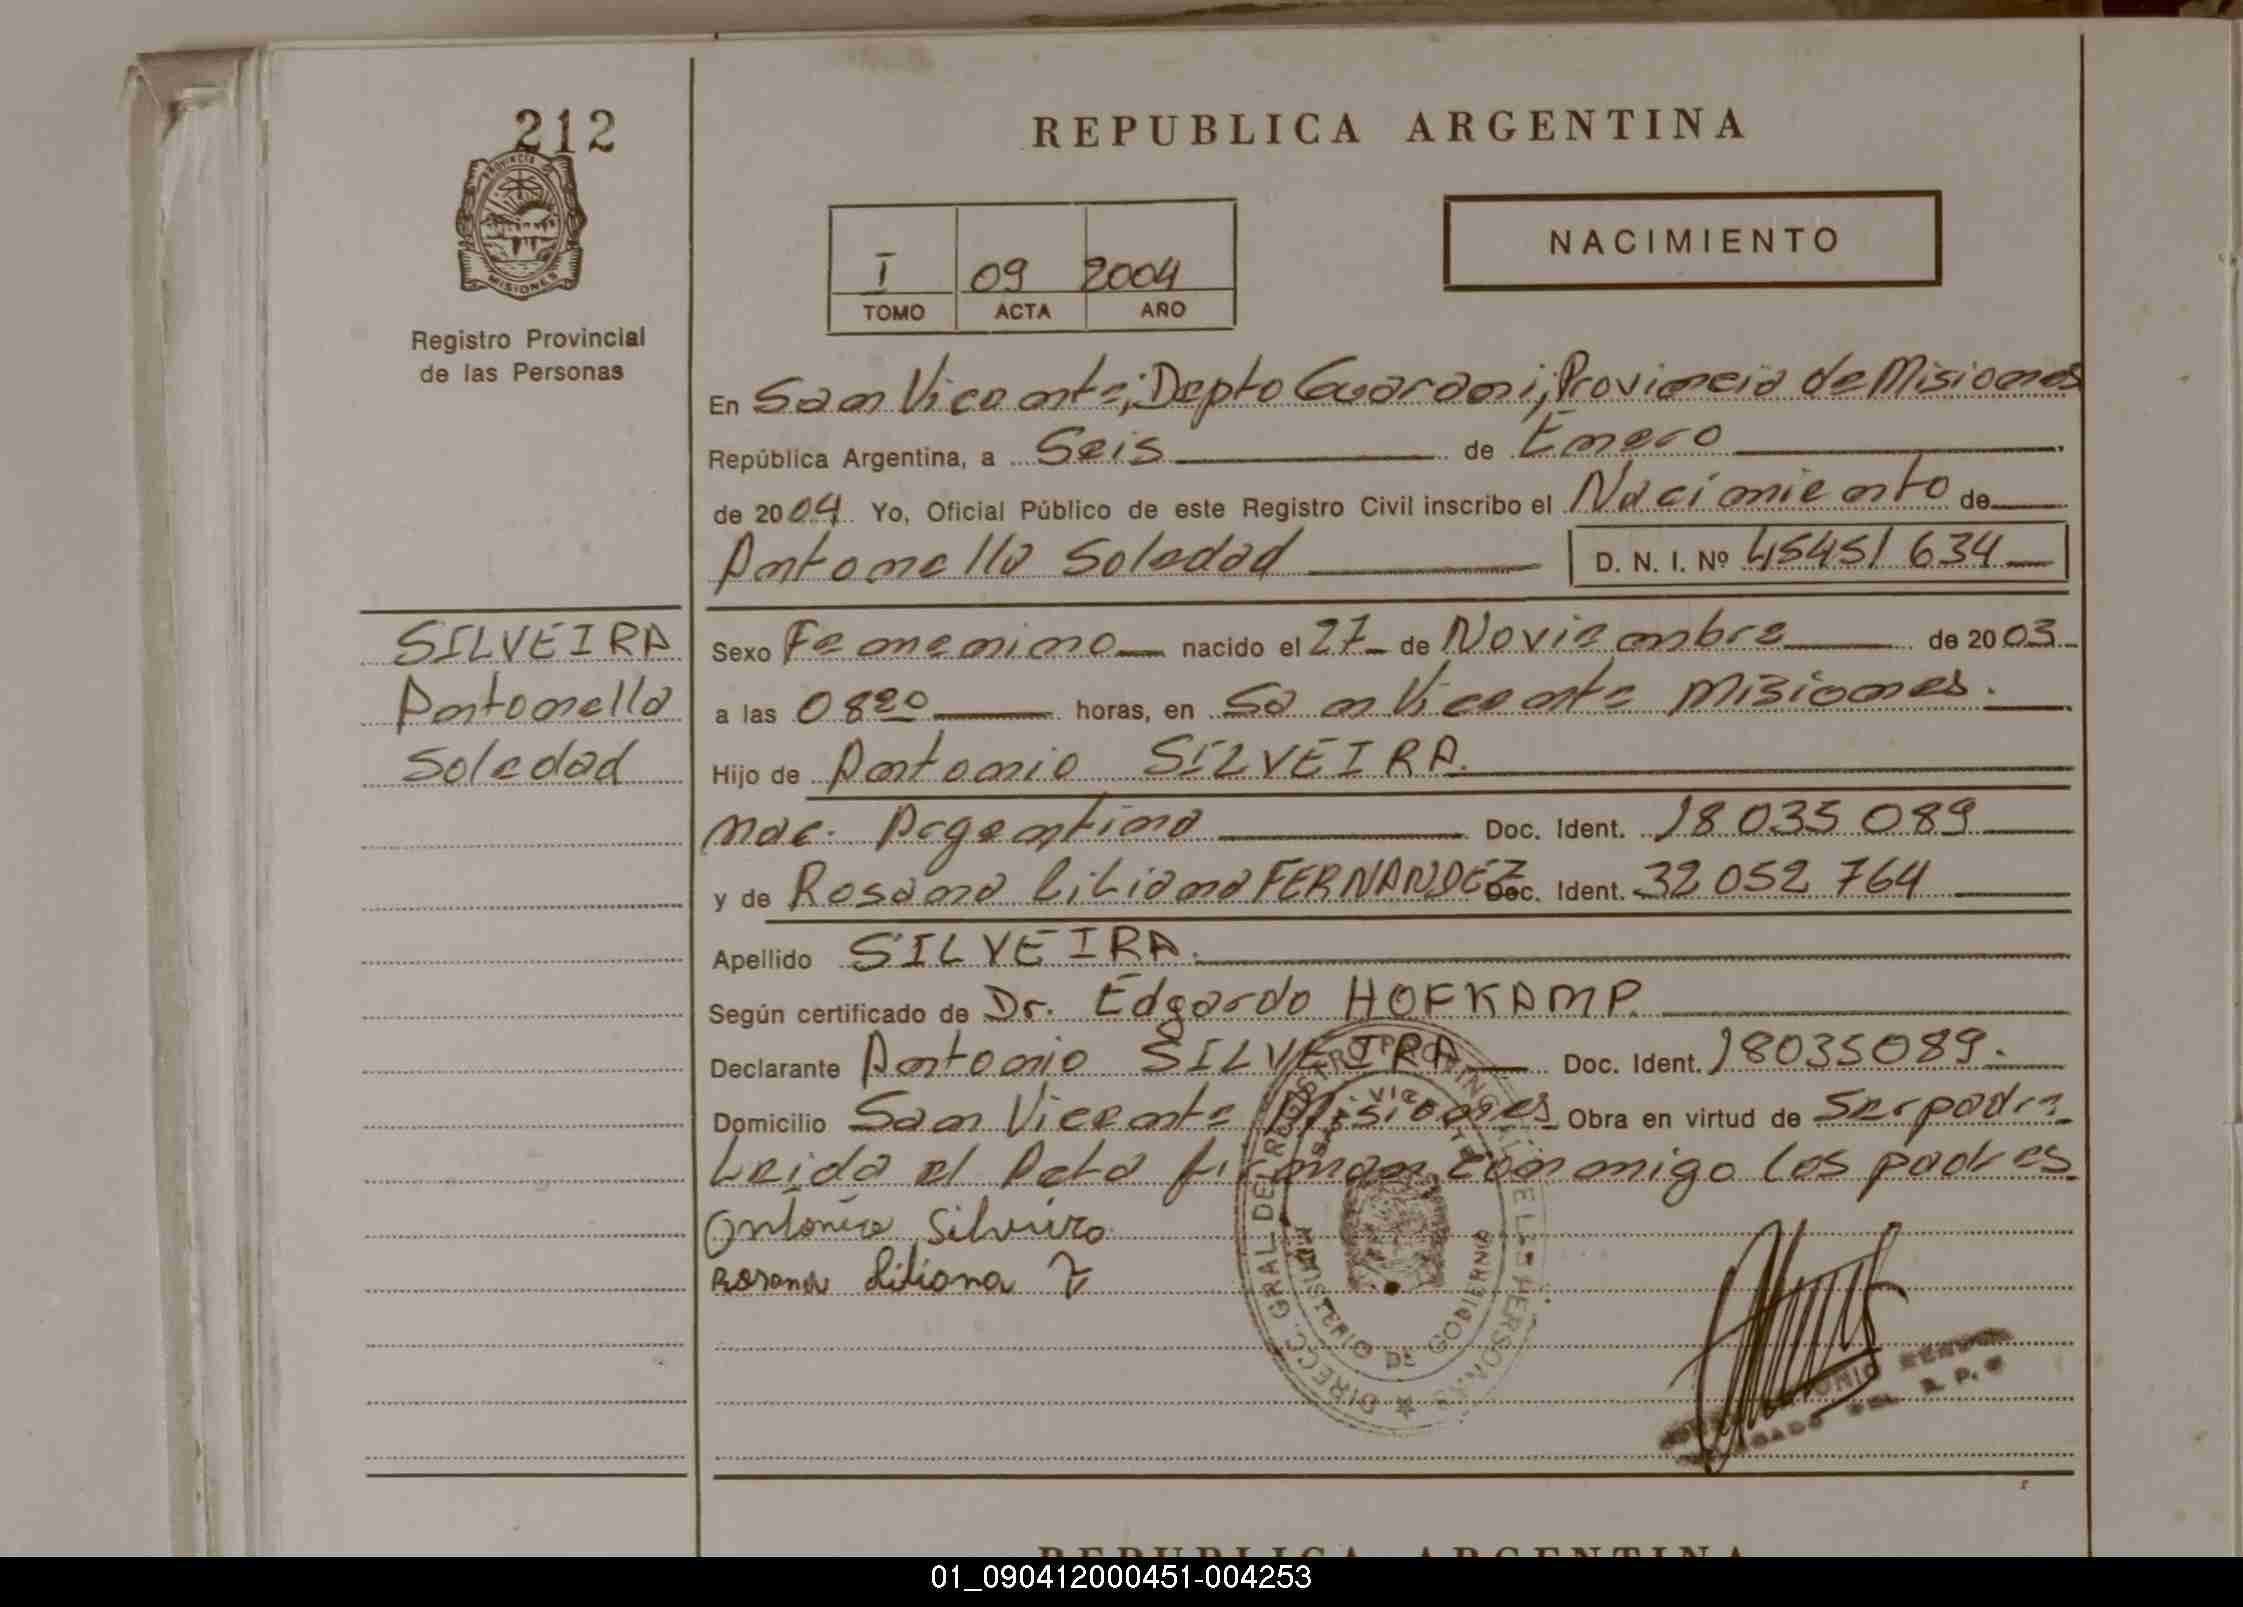 212
PROVINCIA
MISIONES
Registro Provincial
de las Personas
REPUBLICA ARGENTINA
NACIMIENTO
I 09 2004
TOMO ACTA AÑO
En San Vicente; Depto Guarani; Provincia de Misiones
República Argentina, a Seis de Enero
de 2004 Yo, Oficial Público de este Registro Civil inscribo el Nacimiento de
Antonella Soledad D. N. I. Nº 45451634
SILVEIRA
Antonella
Soledad
Sexo Femenino nacido el 27 de Noviembre de 2003
a las 0820 horas, en San Vicente Misiones.
Hijo de Antonio SILVEIRA.
Nac. Argentina Doc. Ident. 18 035 089
y de Rosana Liliana FERNANDEZ Doc. Ident. 32 052 764
Apellido SILVEIRA.
Según certificado de Dr. Edgardo HOFKAMP.
Declarante Antonio SILVEIRA Doc. Ident. 18035089.
Domicilio San Vicente Misiones Obra en virtud de Ser padre
Leida el Acta firman conmigo los padres
Antonio Silveira
Rosana Liliana F
DIRECC. GRAL DEL REGISTRO PROVINCIAL DE LAS PERSONAS
SAN VICENTE
MINISTERIO DE GOBIERNO
ANTONIO
DEL R. P.
REPUBLICA ARGENTINA
01_090412000451-004253